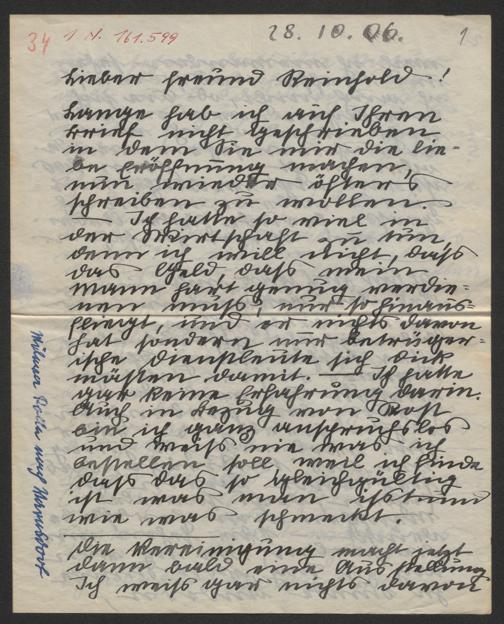 34 I. N. 161.599 28. 10. 06. 1
Lieber Freund Reinhold!
Lange hab ich auf Ihren
Brief nicht geschrieben
in dem Sie mir die lie-
be Eröffnung machen,
nun wieder öfters
schreiben zu wollen.
— Ich hatte so viel in
der Wirtschaft zu tun,
denn ich will nicht, dass
das Geld, dass mein
Mann hart genug verdie-
nen muss, nur so hinaus-
fliegt, und er nichts davon
hat sondern nur betrüger-
ische Dienstleute sich dick
mästen damit. — Ich hatte
gar keine Erfahrung darin.
Auch in Bezug von Kost
bin ich ganz anspruchslos
und weiss nie was ich
bestellen soll, weil ich finde
dass das so gleichgültig
ist was man isst und
wie was schmeckt.
Die Vereinigung macht jetzt
dann bald eine Ausstellung
Ich weiss gar nichts davon